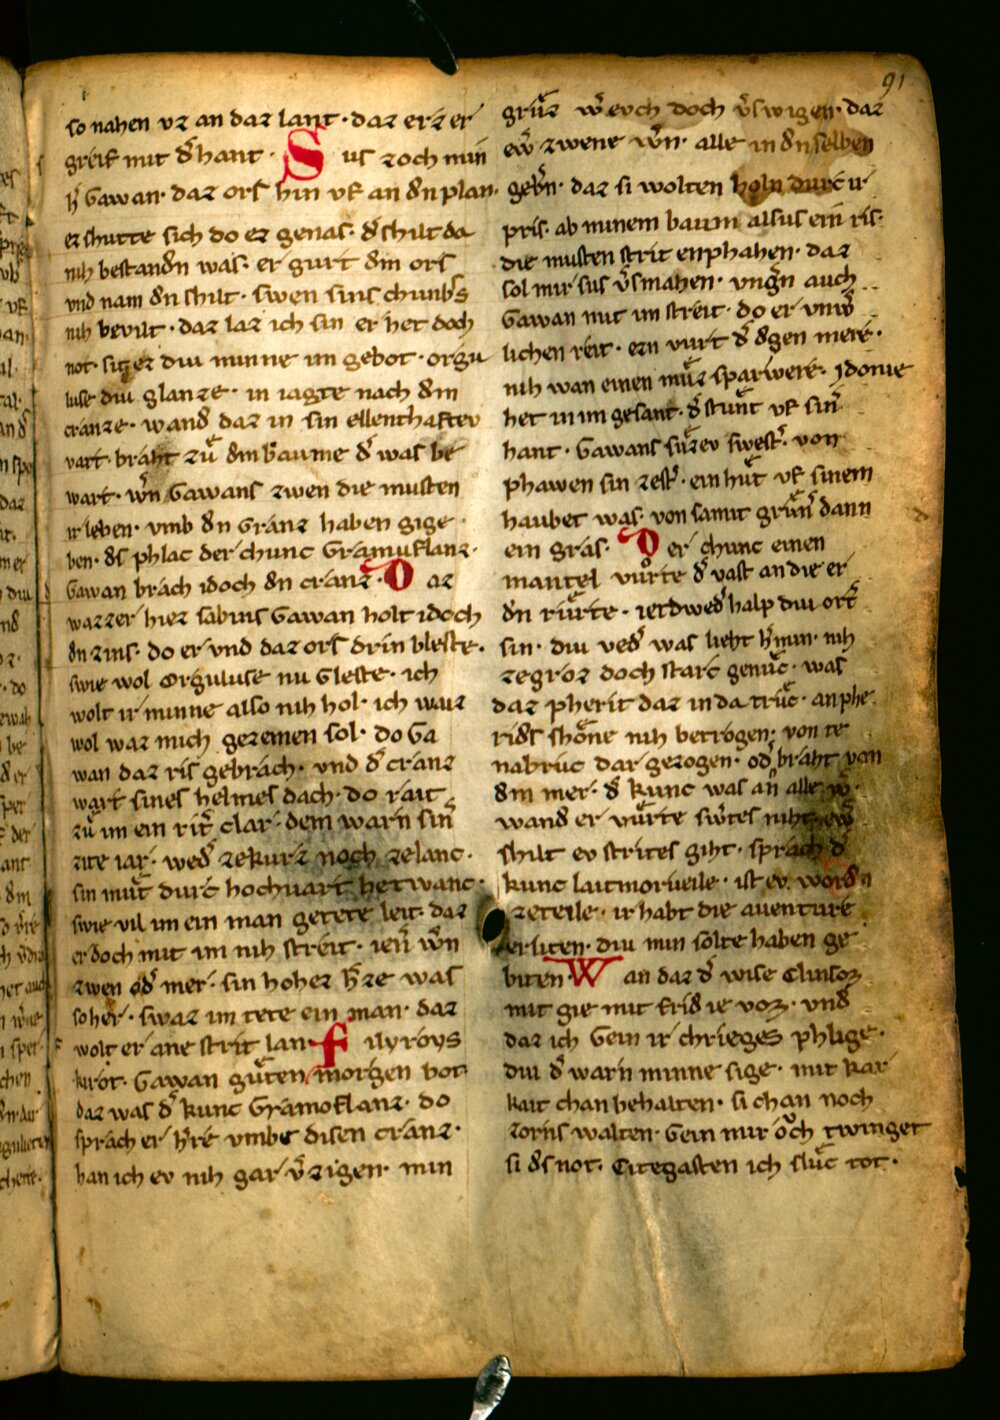 91
so nahen vz an daz lant · daz erz er
greif mit d̾ hant · Sus zoch min
h̾ Gawan · daz ors hin vf an dn plan ·
er shutte sich do er genas · d̾ shilt da
nih bestandn was · er gurt dm ors
vnd nam dn shilt · swen sins chunb̾s
nih bevilt · daz laz ich sin er het doch
not · sit er diu minne im gebot · orgu
luse diu glanze · in iagte nach dm
cranze · wand̾ daz in sin ellenthaftev
vart · bráht zuͤ dm baume d̾ was be
wart · wn̄ Gawans zwen die musten
ir leben · vmb dn Granz haben gige
ben · ds phlac der chunc Gramuflanz ·
Gawan brach idoch dn cranz · Daz
wazzer hiez sabins Gawan holt idoch
dn zins · do er vnd daz ors drin bleste ·
swie wol Orguluse nu Gleste · ich
wolt ir minne also nih hol · ich waiz
wol waz mich gezemen sol · do Ga
wan daz ris gebrach · vnd d̾ cranz
wart sines helmes dach · do rait
zuͤ im ein rit̾ clar · dem warn sin̄
zite iar · wed̾ zekurz noch zelanc ·
sin muͤt durc hochuart het wanc ·
swie vil im ein man getete leit · daz
er doch mit im nih streit · ien̄ wn̄
zwen od̾ mer · sin hoher h̾ze was
so her · swaz im tete ein man · daz
wolt er ane strit lan · Filyroys
kirot · Gawan guͤten morgen bot
daz was d̾ kunc Gramoflanz · do
sprach er h̾re vmbe disen cranz ·
han ich ev nih gar v̾zigen · min
gruͤz w̾ evch doch v̾swigen · daz
ew̾ zwene wn̄ · alle in dn selben
geb̾n · daz si wolten holn durc ir
pris · ab minem baum alsus ein ris ·
die musten strit enphahen · daz
sol mir sus v̾smahen · vngn̄ auch
Gawan mit im streit · do er vnw̾
lichen reit · ezn vurt d̾ dgen mere ·
nih wan einen muͤz sparwere · Jdonie
het in im gesant · d̾ stunt vf sin̄
hant · Gawans suͤzev swest̾ · von
phawen sin zest̾ · ein huͤt vf sinem
haubet was · von samit gruͤn̄ dann
ein gras · Der chunc einen
mantel vuͦrte d̾ vast an die er
dn ruͤrte · ietwed̾ halp diu ort̾
sin · diu ved̾ was lieht h̾min · nih
zegroz doch starc genuͤc · was
daz pherit daz in da truͤc · an phe
rids shoͤne nih betrogen · von te
nabruc dar gezogen · od̾ braht van
dm mer · d̾ kunc was an alle w̾
wand er vuͤrte sw̾tes niht · ew̾
shilt ev strites giht · sprach d̾
kunc laitmorueile · ist ev · wordn
zeteile · ir habt die auenture
erliten · diu min solte haben ge
biten · Wan daz d̾ wise Clinsor
mit gie mit frid ie vor · vnd̾
daz ich Gein ir chrieges phlige ·
diu d̾ warn minne sige · mit kar
kait chan behalten · si chan noch
zorns walten · Gein mir oͮch twinget
si ds not · Citegasten ich sluͤc tot ·